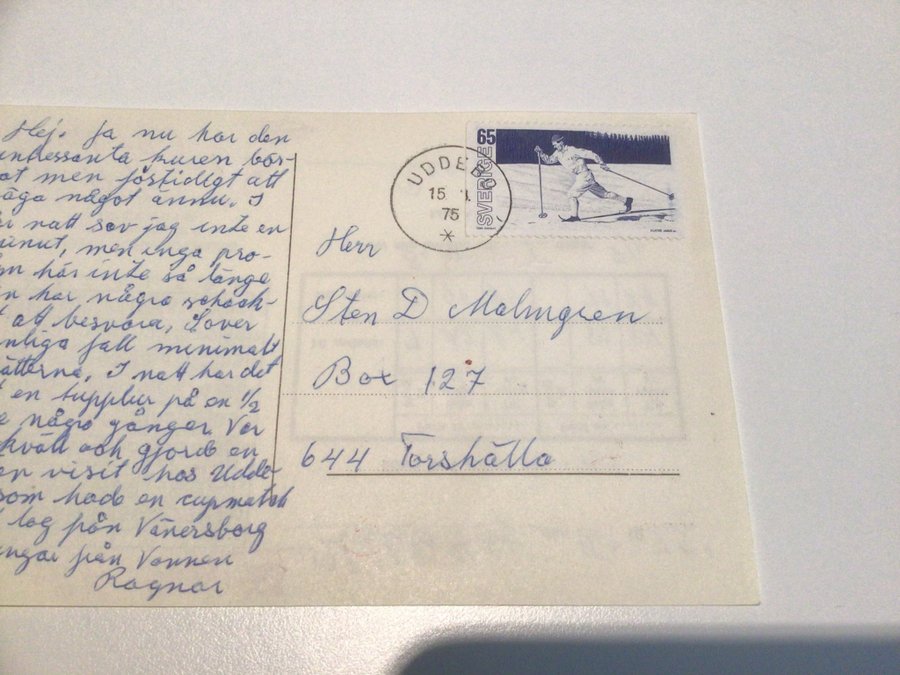 Hej. Ja nu har den
intressanta kuren bör-
jat men förtidigt att
säga något ännu. I
natt sov jag inte en
minut, men inga pro-
här inte så länge
har några schack-
att besvara. Sover
fall minimalt
nätterna. I natt har det
en tupplur på en 1/2
några gånger. Var
kväll och gjorde en
visit hos Udde-
som hade en cupmatch
lag från Vänersborg
från Vännen
Ragnar
UDDEBO
15
75
*
65
SVERIGE
Herr
Sten D Malmgren
Box 127
644 Torshälla